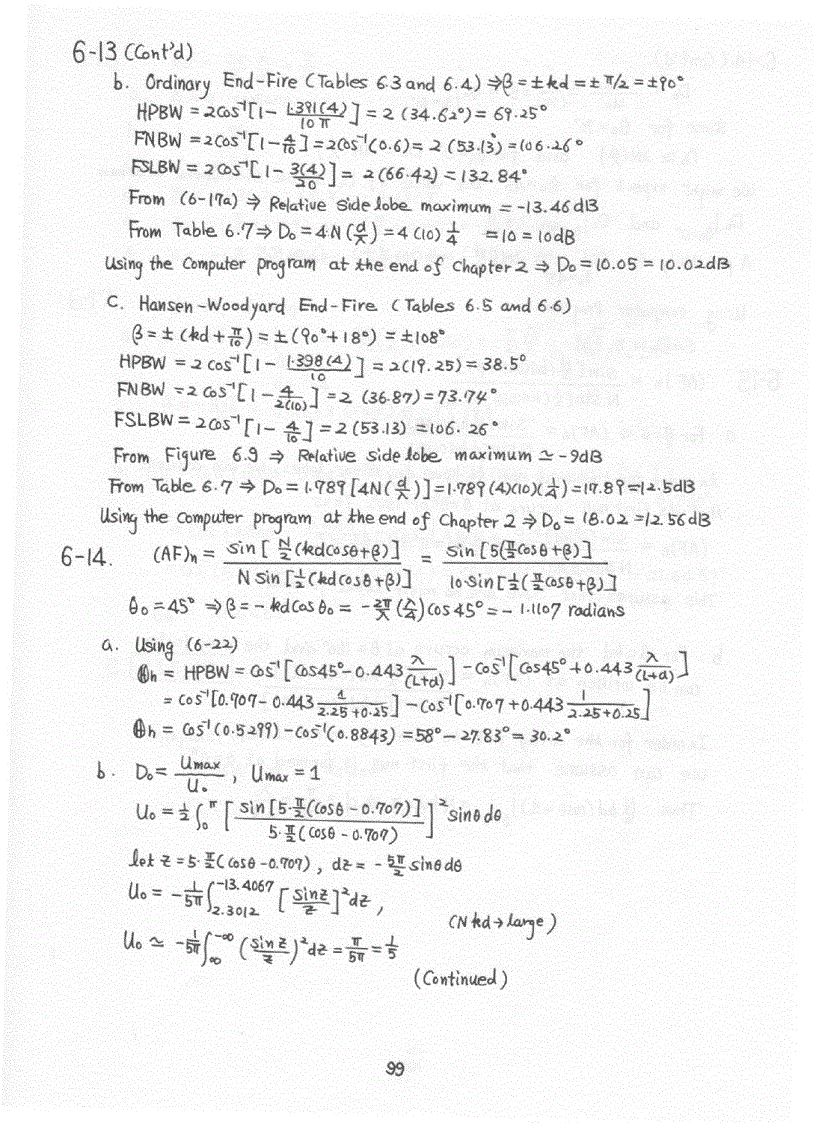 6-13 (Cont'd)
b. Ordinary End-Fire (Tables 6.3 and 6.4) ⇒ β = ± kd = ± π/2 = ±90°
HPBW = 2cos⁻¹[1 - 1.391(4)/10π] = 2 (34.62°) = 69.25°
FNBW = 2cos⁻¹[1 - 4/10] = 2cos⁻¹(0.6) = 2 (53.13)° = 106.26°
FSLBW = 2cos⁻¹[1 - 3(4)/20] = 2(66.42) = 132.84°
From (6-17a) ⇒ Relative side lobe maximum = -13.46 dB
From Table 6.7 ⇒ D₀ = 4·N (d/λ) = 4 (10) 1/4 = 10 = 10dB
Using the Computer program at the end of Chapter 2 ⇒ D₀ = 10.05 = 10.02dB
C. Hansen-Woodyard End-Fire (Tables 6.5 and 6.6)
β = ± (kd + π/10) = ± (90° + 18°) = ±108°
HPBW = 2 cos⁻¹[1 - 1.398(4)/10] = 2(19.25) = 38.5°
FNBW = 2 cos⁻¹[1 - 4/2(10)] = 2 (36.87) = 73.74°
FSLBW = 2cos⁻¹[1 - 4/10] = 2(53.13) = 106.26°
From Figure 6.9 ⇒ Relative side lobe maximum ≃ -9dB
From Table 6.7 ⇒ D₀ = 1.789[4N(d/λ)] = 1.789(4)(10)(1/4) = 17.89 = 12.5dB
Using the Computer program at the end of Chapter 2 ⇒ D₀ = 18.02 = 12.56dB
6-14. (AF)n = sin[N/2(kdcosθ+β)] / N sin[1/2(kdcosθ+β)] = sin[5(π/2 cosθ+β)] / 10·sin[1/2(π/2 cosθ+β)]
θ₀ = 45° ⇒ β = - kd cos θ₀ = - 2π/λ (λ/4) cos 45° = - 1.1107 radians
a. Using (6-22)
Θh = HPBW = cos⁻¹[cos45° - 0.443 λ/(L+d)] - cos⁻¹[cos45° + 0.443 λ/(L+d)]
= cos⁻¹[0.707 - 0.443 1/2.25+0.25] - cos⁻¹[0.707 + 0.443 1/2.25+0.25]
Θh = cos⁻¹(0.5299) - cos⁻¹(0.8843) = 58° - 27.83° = 30.2°
b. D₀ = Umax/U₀, Umax = 1
U₀ = 1/2 ∫₀^π [sin[5·π/2(cosθ - 0.707)] / 5·π/2(cosθ - 0.707)]² sinθ dθ
let z = 5·π/2(cosθ - 0.707), dz = - 5π/2 sinθ dθ
U₀ = - 1/5π ∫_{2.3012}^{-13.4067} [sin z / z]² dz,
(Nkd → large)
U₀ ≃ - 1/5π ∫_{∞}^{-∞} (sin z / z)² dz = π/5π = 1/5
(Continued)
99